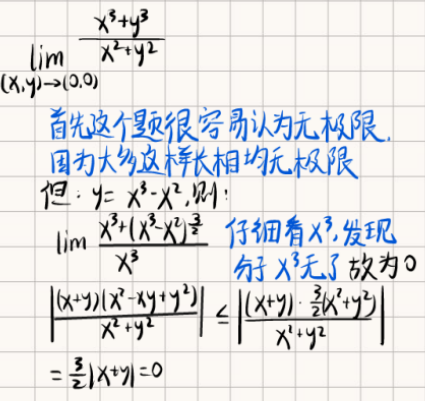 lim_{(x,y)→(0,0)} \frac{x³+y³}{x²+y²}
首先这个题很容易认为无极限.
因为大多这样长相均无极限
但: y= x³-x², 则:
lim \frac{x³+(x³-x²)^{\frac{3}{2}}}{x³} 仔细看x³,发现
分子 x³无了 故为0
|\frac{(x+y)(x²-xy+y²)}{x²+y²}| ≤ |\frac{(x+y)·\frac{3}{2}(x²+y²)}{x²+y²}|
= \frac{3}{2}|x+y|=0